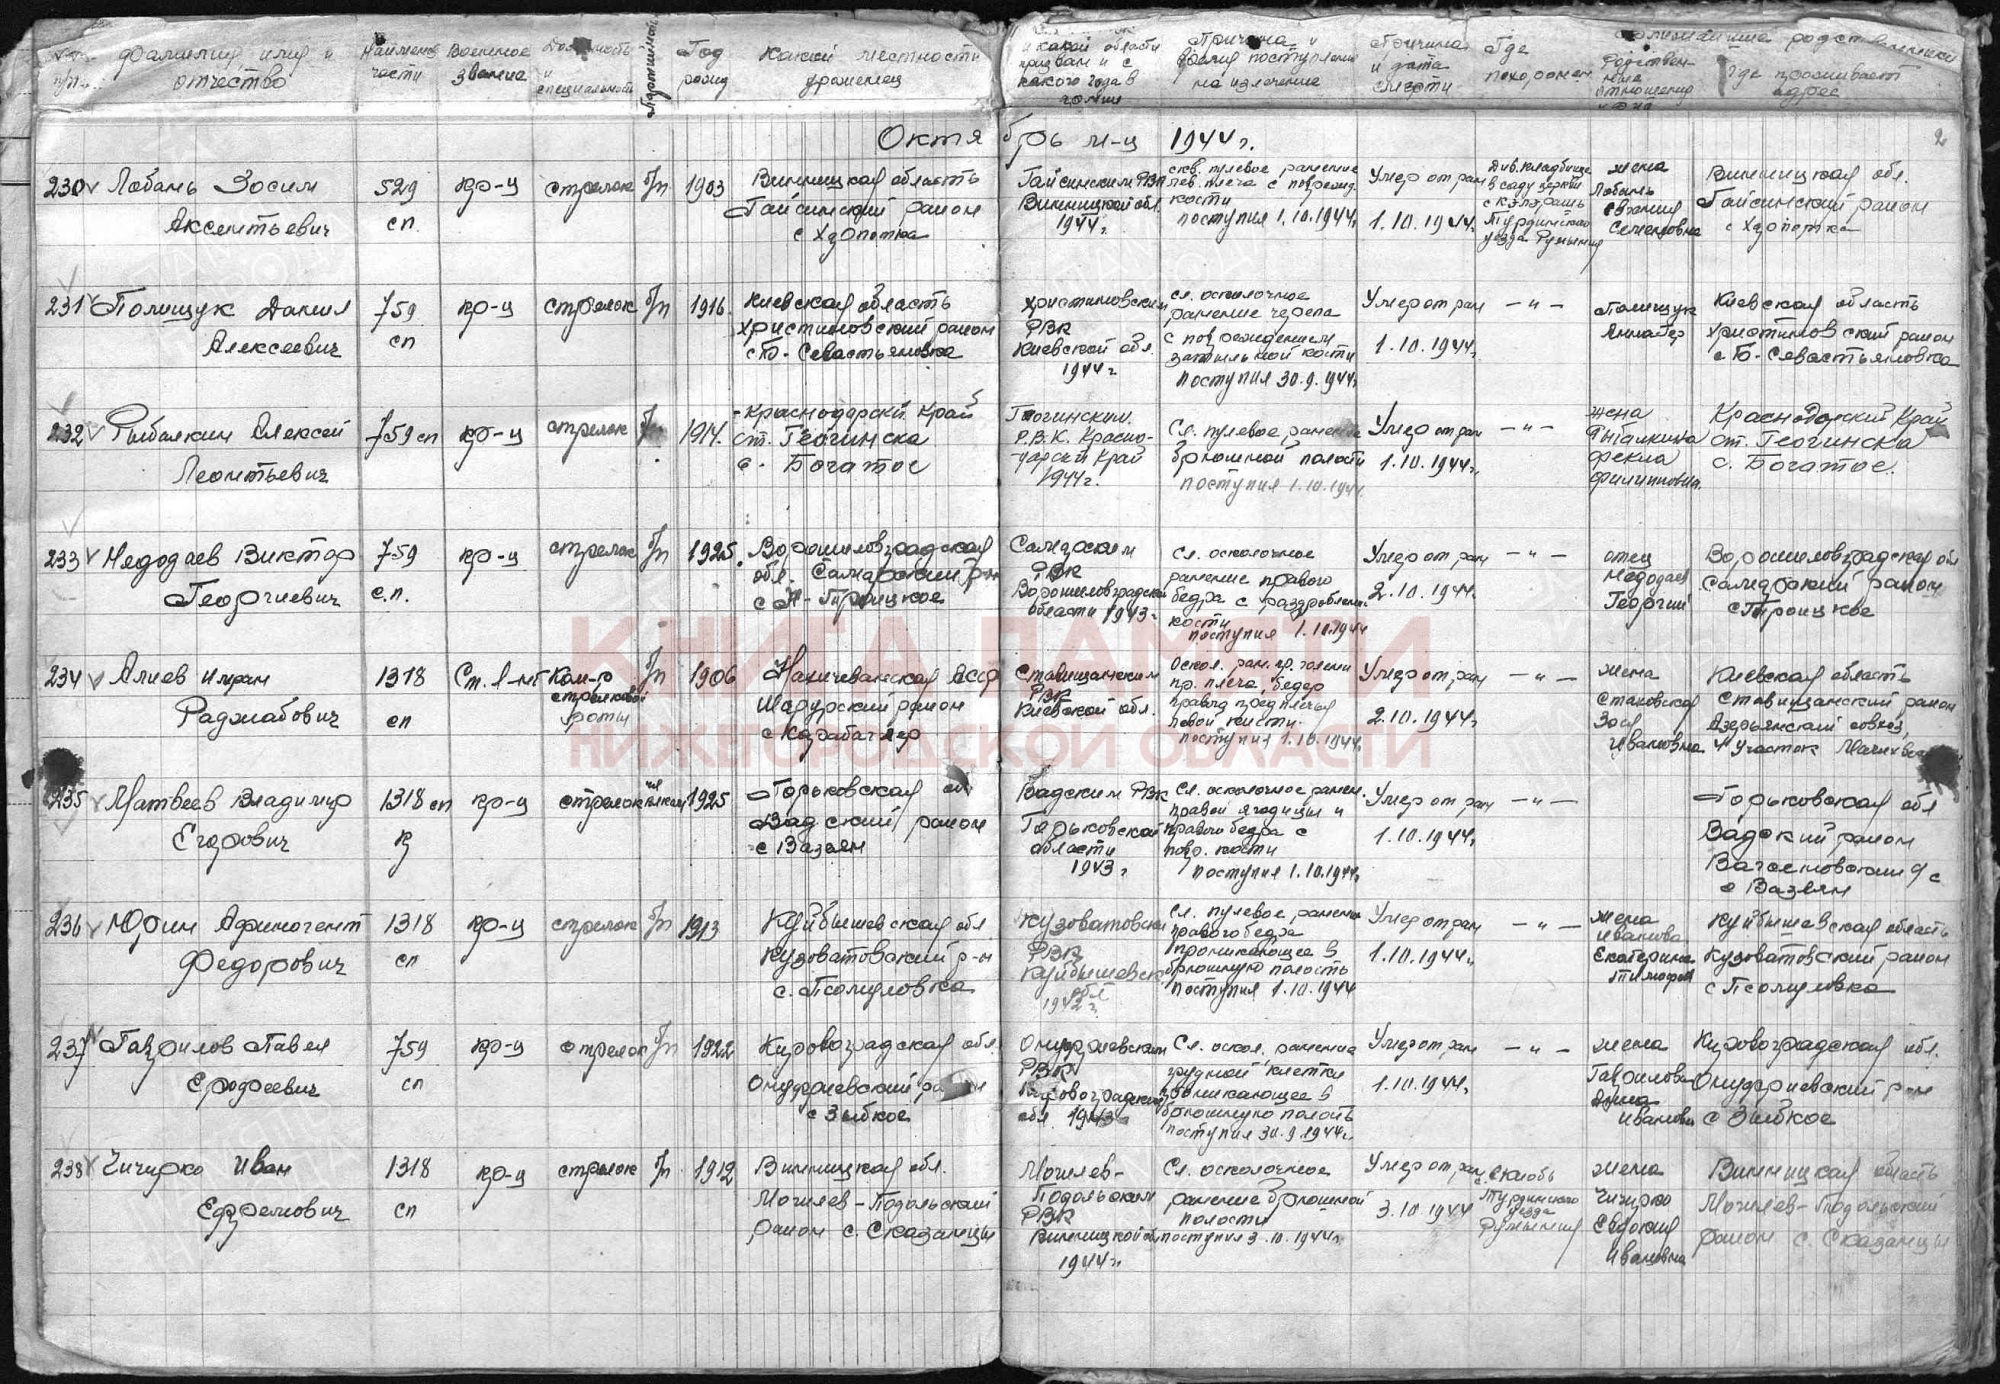 Фамилия имя и отчество
Наименов. части
Военное звание
Должность и специальность
Партийность
Год рожд
Какой местности уроженец
и какой области призван и с какого года в армии
Причина и время поступления на излечение
Причина и дата смерти
Где похоронен
Ближайшие родственники
Родствен-ные отношения
Где проживает адрес
Октябрь м-ц 1944 г.
2
230 Лобань Зосим Аксентьевич
529 сп
кр-ц
стрелок
б/п
1903
Винницкая область Гайсинский район
Гайсинским РВК Винницкой обл. 1944 г.
скв. пулевое ранение лев. плеча с поврежд. кости поступил 1.10.1944г.
Умер от ран 1.10.1944г.
Див. кладбище в саду церкви Турдинского уезда Румыния
жена Лобань Евгения Семеновна
Винницкая обл. Гайсинский район
231 Полищук Данил Алексеевич
759 сп
кр-ц
стрелок
б/п
1916.
Киевская область Христиновский район с Б-Севастьяновка
Христиновским РВК Киевской обл. 1944 г
сл. осколочное ранение черепа с повреждением затыльной кости поступил 30.9.1944г
Умер от ран 1.10.1944г.
— " —
Полищук
Киевская область Христиновский район с Б-Севастьяновка
232 Рыбалкин Алексей Леонтьевич
759 сп
кр-ц
стрелок
б/п
1914.
Краснодарский Край ст. Геогинска с. Богатое
Геогинским Р.В.К. Красно-дарский Край 1944г.
Сл. пулевое ранение брюшной полости поступил 1.10.1944
Умер от ран 1.10.1944г.
— " —
жена Рыбалкина Фекла Филипповна.
Краснодарский Край ст. Геогинска с. Богатое.
233 Недодаев Виктор Георгиевич
759 с.п.
кр-ц
стрелок
б/п
1925.
Ворошиловградская обл. Самарский р-н с Н-Троицкое
Самарским РВК Ворошиловградской области 1943г.
Сл. осколочное ранение правого бедра с раздроблен. кости поступил 1.10.1944
Умер от ран 2.10.1944г.
— " —
отец Недодаев Георгий
Ворошиловградская обл Самарский район с Троицкое
234 Алиев Имран Раджабович
1318 сп
Ст. л-нт
Ком-р стрелковой роты
б/п
1906
Нахичеванская АССР Шарурский район
Ставищанским РВК Киевской обл.
Оскол. ран. гр. голени пр. плеча, бедер правого предплечья левой кисти. поступил 1.10.1944г.
Умер от ран 2.10.1944г
— " —
жена Стаковская Зося Ивановна
Киевская область Ставищанский район совхоз, 4 участок
235 Матвеев Владимир Егорович
1318 сп
кр-ц
стрелок
1925
Горьковская обл Вадский район
Вадским РВК Горьковской области 1943г
Сл. осколочное ранен. правой ягодицы и правого бедра с повр. кости поступил 1.10.1944г
Умер от ран 1.10.1944г.
— " —
Горьковская обл Вадский район
236 Юрин Афиногент Федорович
1318 сп
кр-ц
стрелок
б/п
1913
Куйбышевская обл Кузоватовский р-н с.
Кузоватовским РВК Куйбышевск обл 1942г
Сл. пулевое ранение правого бедра проникающее в брюшную полость поступил 1.10.1944
Умер от ран 1.10.1944г.
— " —
жена Иванова Екатерина Тимофеев
Куйбышевская область Кузоватовский район
237 Гаврилов Павел Ерофеевич
759 сп
кр-ц
стрелок
б/п
1922
Кировоградская обл. Онуфриевский район с Зыбкое
Онуфриевским РВК Кировоградская обл. 1943
Сл. оскол. ранение грудной клетки проникающее в брюшную полость поступил 30.9.1944г.
Умер от ран 1.10.1944г.
— " —
жена Гаврилова Анна Ивановн
Кировоградская обл. Онуфриевский р-он с Зыбкое
238 Чичирко Иван Ефремович
1318 сп
кр-ц
стрелок
б/п
1912
Винницкая обл. Могилев-Подольский район с. Сказинцы
Могилев-Подольским РВК Винницкой обл 1944г.
Сл. осколочное ранение брюшной полости поступил 3.10.1944г.
Умер от ран 3.10.1944
Турдинского уезда Румыния
жена Чичирко Евдокия Ивановна
Винницкая область Могилев-Подольский район с. Сказинцы
КНИГА ПАМЯТИ
НИЖЕГОРОДСКОЙ ОБЛАСТИ